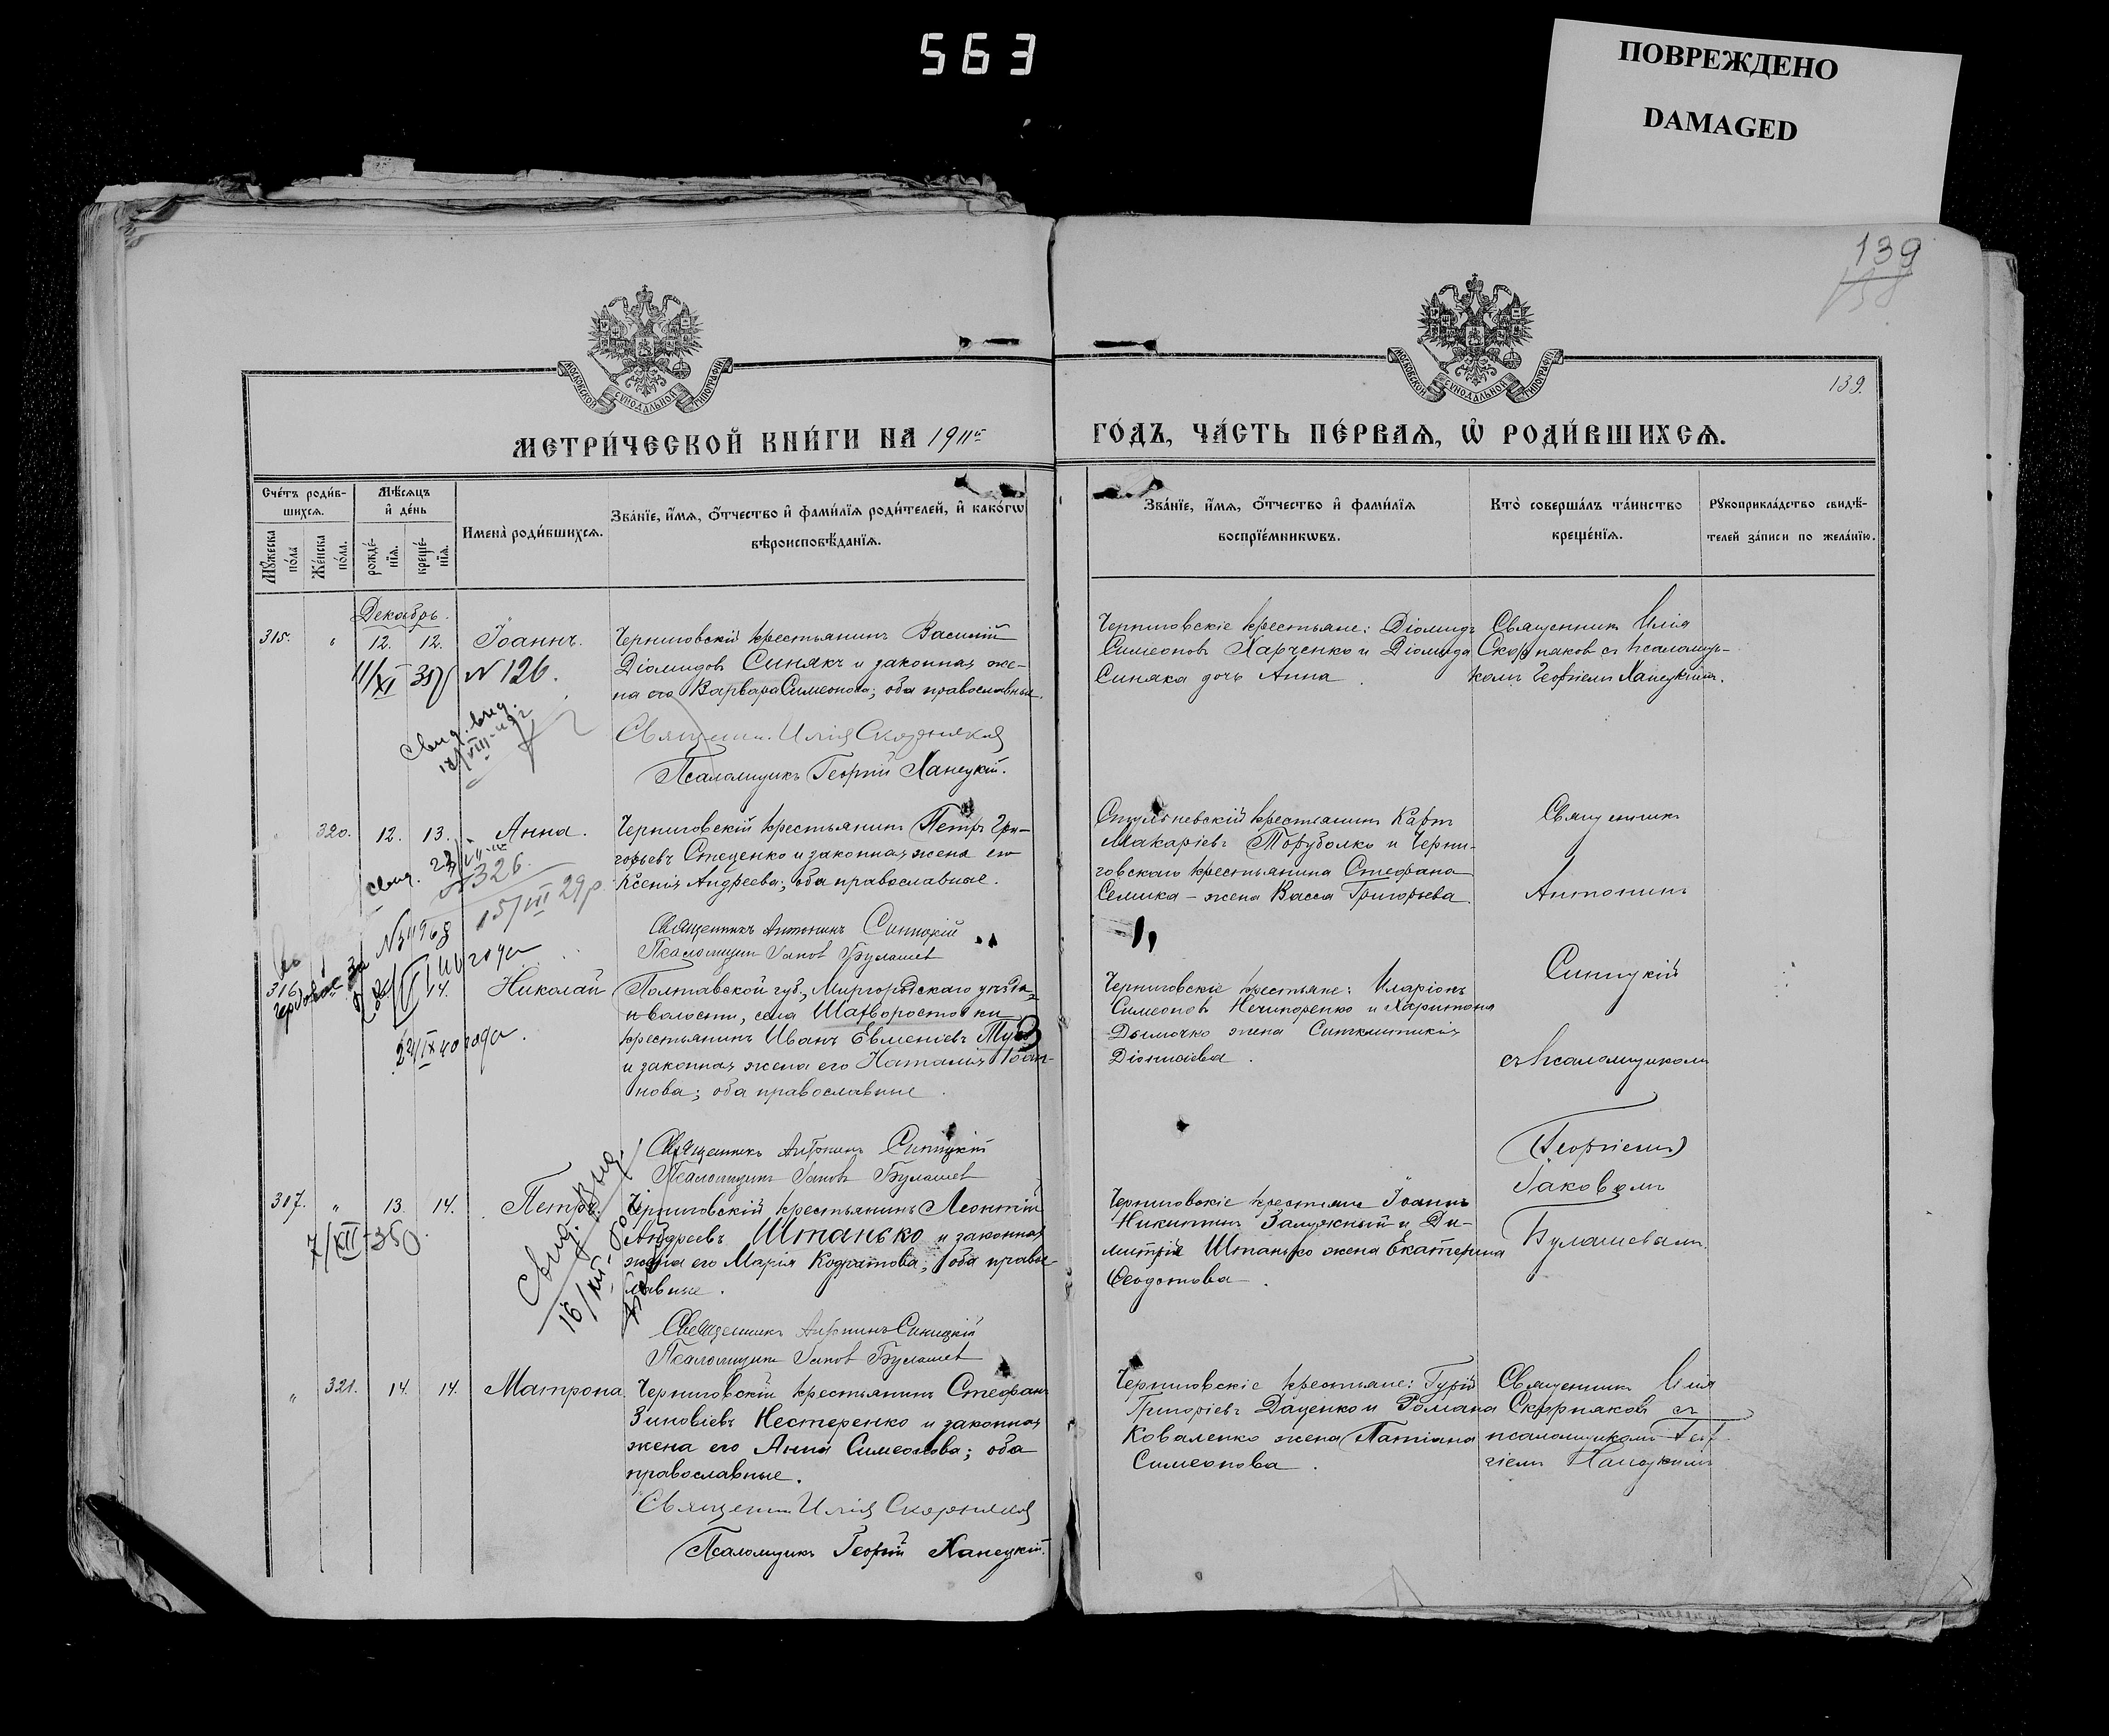 563
ПОВРЕЖДЕНО
DAMAGED
139
139.
МОСКОВСКОЙ СѴНОДАЛЬНОЙ ТИПОГРАФІИ
МОСКОВСКОЙ СѴНОДАЛЬНОЙ ТИПОГРАФІИ
МЕТРИ́ЧЕСКОЙ КНИ́ГИ НА 1911й
ГО́ДЪ, ЧА́СТЬ ПЕ́РВАѦ, Ѽ РОДИ́ВШИХСѦ.
Сче́тъ роди́в-
шихсѧ.
Мꙋ́жеска по́ла
Же́нска по́ла.
Мѣ́сѧцъ
и҆ де́нь
рожде́-
нїѧ.
креще́-
нїѧ.
И҆мена̀ роди́вшихсѧ.
Зва́нїе, и҆́мѧ, ѻ҆́тчество и҆ фами́лїѧ роди́телей, и҆ како́гѡ
вѣроисповѣ́данїѧ.
Зва́нїе, и҆́мѧ, ѻ҆́тчество и҆ фами́лїѧ
воспрїе́мникѡвъ.
Кто̀ соверша́лъ та́инство
креще́нїѧ.
Рꙋкоприкла́дство свидѣ́-
телей за́писи по жела́нїю.
Декабрь.
315. " 12. 12. Іоаннъ.
11/XI 35 N 126.
Черниговскій крестьянинъ Василій
Діомидовъ Синякъ и законная же-
на его Варвара Симеонова; оба православные.
Священн. Илія Скорняковъ
Псаломщикъ Георгій Ханецкій.
Черниговскіе крестьяне: Діомидъ
Симеоновъ Харченко и Діомида
Синяка дочь Анна
Священникъ Илія
Скорняковъ съ псаломщи-
комъ Георгіемъ Ханецкимъ.
" 320. 12. 13. Анна.
N 326
15/III 29 р.
Черниговскій крестьянинъ Петръ Гри-
горьевъ Стеценко и законная жена его
Ксенія Андреева; оба православные.
Священникъ Антонинъ Синицкій
Псаломщикъ Іаковъ Булашев
крестьянинъ
Макаріевъ и Черни-
говскаго крестьянина Стефана
Семика - жена Васса Григорьева.
Священникъ
Антонинъ
Синицкій
съ псаломщикомъ
(Георгіемъ)
Іаковомъ
Булашевымъ.
316. 14. Николай
22/IX 40 года.
Полтавской губ., Миргородскаго уѣзда,
и волости, села Шахворостовки
крестьянинъ Иванъ Евменіевъ
и законная жена его Наталія Іоан-
нова; оба православные.
Священникъ Антонинъ Синицкій
Псаломщикъ Іаковъ Булашев
Черниговскіе крестьяне: Иларіонъ
Симеоновъ Нечипоренко и Харитона
жена Синклитикія
Діонисіева.
317. " 13. 14. Петръ.
7/XII-35
Свид. выд.
Черниговскій крестьянинъ Леонтій
Андреевъ Штанько и законная
жена его Марія Кодратова; оба право-
славные.
Священникъ Антонинъ Синицкій
Псаломщикъ Іаковъ Булашев
Черниговскіе крестьяне Іоаннъ
Никитинъ Залужный и Ди-
митрія Штанько жена Екатерина
Феодотова.
" 321. 14. 14. Матрона.
Черниговскій крестьянинъ Стефанъ
Зиновіевъ Нестеренко и законная
жена его Анна Симеонова; оба
православные.
Священн. Илія Скорняковъ
Псаломщикъ Георгій Ханецкій.
Черниговскіе крестьяне: Гурій
Григоріевъ Даценко и Романа
Коваленко жена Татіана
Симеонова.
Священникъ Илія
Скорняковъ съ
псаломщикомъ Геор-
гіемъ Ханецкимъ